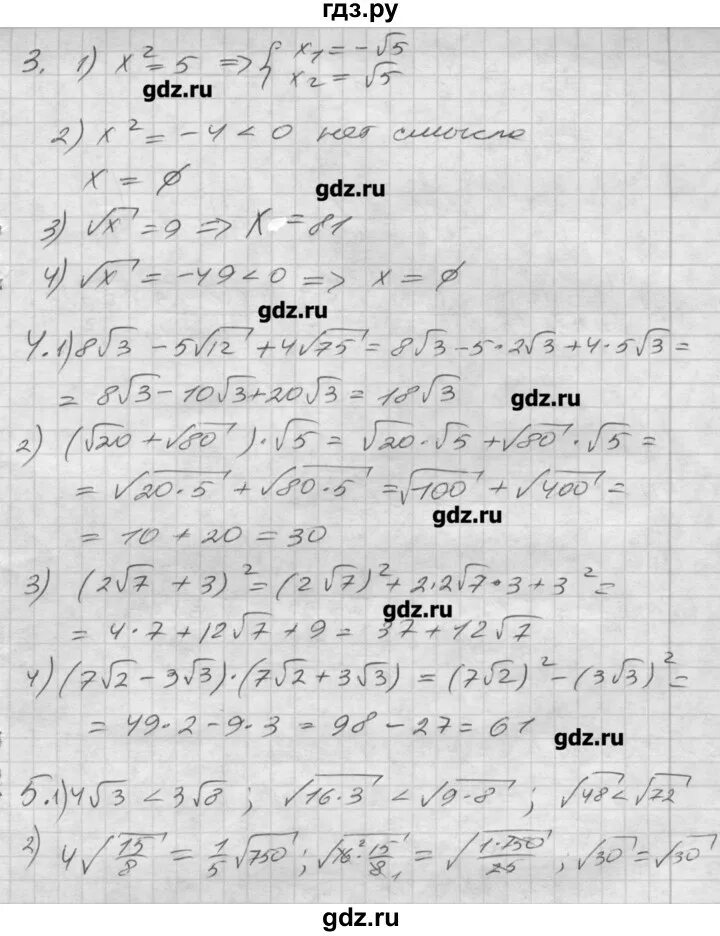 гдз.ру
3. 1) x² = 5 => { x₁ = -√5
x₂ = √5
gdz.ru
2) x² = -4 < 0 нет смысла
x = ∅
gdz.ru
3) √x = 9 => x = 81
4) √x = -49 < 0 => x = ∅
gdz.ru
4. 1) 8√3 - 5√12 + 4√75 = 8√3 - 5·2√3 + 4·5√3 =
= 8√3 - 10√3 + 20√3 = 18√3
gdz.ru
2) (√20 + √80)·√5 = √20·√5 + √80·√5 =
= √20·5 + √80·5 = √100 + √400 =
gdz.ru
= 10 + 20 = 30
3) (2√7 + 3)² = (2√7)² + 2·2√7·3 + 3² =
gdz.ru
= 4·7 + 12√7 + 9 = 37 + 12√7
4) (7√2 - 3√3)·(7√2 + 3√3) = (7√2)² - (3√3)² =
= 49·2 - 9·3 = 98 - 27 = 61
gdz.ru
5. 1) 4√3 < 3√8 ; √16·3 < √9·8 ; √48 < √72
2) 4√15/8 = 1/5 √750 ; √16²·15/8₁ = √1·750/25 , √30 = √30
gdz.ru